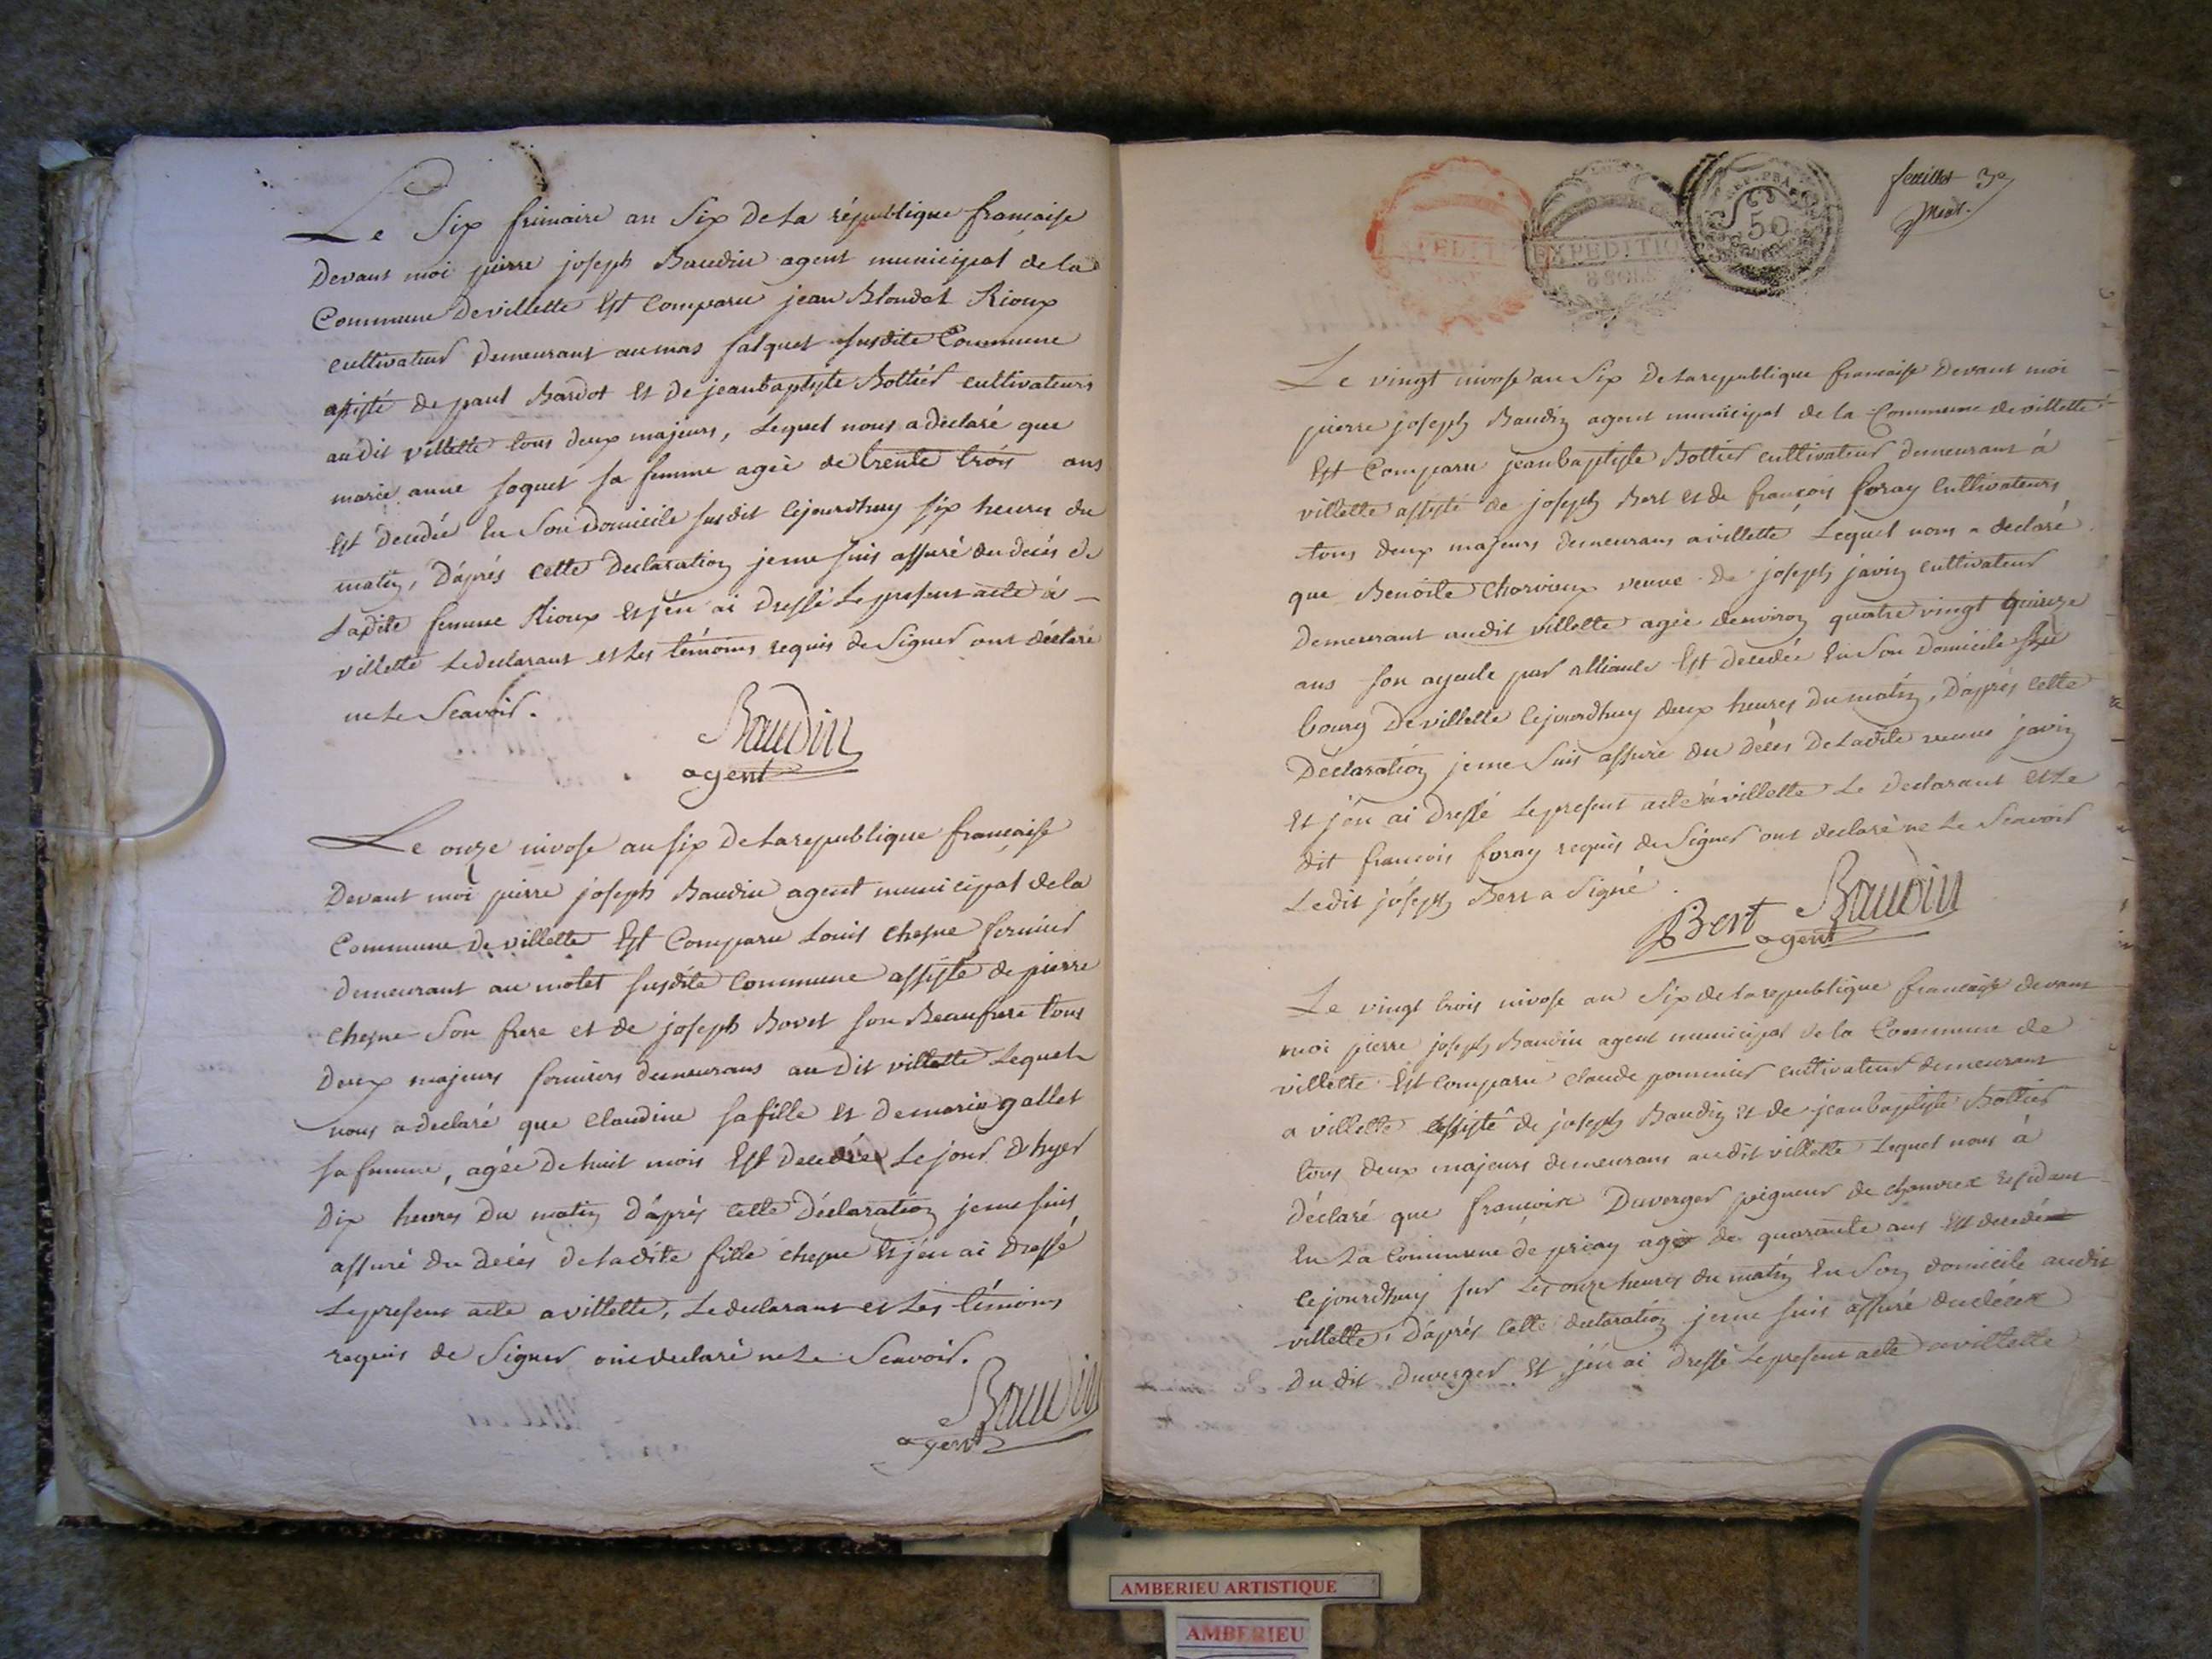 Le Six frimaire an Six De la république francaise
Devant moi pierre joseph Baudin agent municipal de la
Commune De villette Est Comparu jean Blondet Rioux
cultivateur Demeurant au mas falquet susdite Commune
assisté de paul Bardot et de jean baptiste Bottier cultivateurs
au dit villette tous deux majeurs, Lequel nous a declaré que
marie anne soquet sa femme agée de trente trois ans
Est decedée En Son Domicile susdit cejourdhuy six heures du
matin, D'après cette Declaration je me suis assuré du decès de
Ladite femme Rioux et j'en ai Dressé Le present acte à
villette Le declarant et Les témoins requis de Signer ont déclaré
ne Le Scavoir.
Baudin
agent
Le onze nivose an six De la republique francaise
Devant moi pierre joseph Baudin agent municipal de la
Commune De villette Est Comparu Louis chesne fermier
demeurant au molet susdite Commune assisté de pierre
chesne Son frere et de joseph Bovet son Beaufrere tous
Deux majeurs fermiers demeurans au Dit villette Lequel
nous a declaré que Claudine sa fille et de marie gallet
sa femme, agée De huit mois Est decedée Le jour d'hyer
Dix heures Du matin D'après cette Déclaration je me suis
assuré Du decès De la dite fille chesne Et j'en ai Dressé
Le present acte a villette, Le declarant et Les témoins
requis de Signer ont declaré ne Le Scavoir.
Baudin
agent
feuillet 3e
EXPEDITION
8 SOLS
REP. FRA
50
Le vingt nivose an Six De la republique francaise Devant moi
pierre joseph Baudin agent municipal de la Commune de villette
Est Comparu jean baptiste Bottier cultivateur demeurant à
villette assisté de joseph Bert et de françois foray Cultivateurs
tous deux majeurs demeurans a villette Lequel nous a declaré
que Benoite Charvieux veuve de joseph javin cultivateur
Demeurant audit villette agée denviron quatre vingt quinze
ans son ayeule par alliance Est decedée En Son Domicile
bourg De villette cejourdhuy deux heures Du matin, D'après cette
Déclaration je me Suis assuré du décès De la dite veuve javin
Et j'en ai Dressé Le present acte à villette Le Declarant et Le
dit francois foray requis de Signer ont declaré ne Le Scavoir
Ledit joseph Bert a Signé.
Bert Baudin
agent
Le vingt trois nivose an Six de la republique francaise devant
moi pierre joseph Baudin agent municipal de la Commune de
villette Est comparu claude pommier cultivateur demeurant
a villette assisté de joseph Baudin et de jean baptiste Bottier
tous deux majeurs demeurans audit villette Lequel nous à
déclaré que francoise Duverger peigneur de chanvre residant
En La Commune de priay agé de quarante ans Est decedé
cejourdhuy sur Les onze heures du matin En Son domicile audit
villette, D'après cette declaration je me suis assuré du décès
Du dit Duverger Et j'en ai Dressé Le present acte a villette
AMBERIEU ARTISTIQUE
AMBERIEU